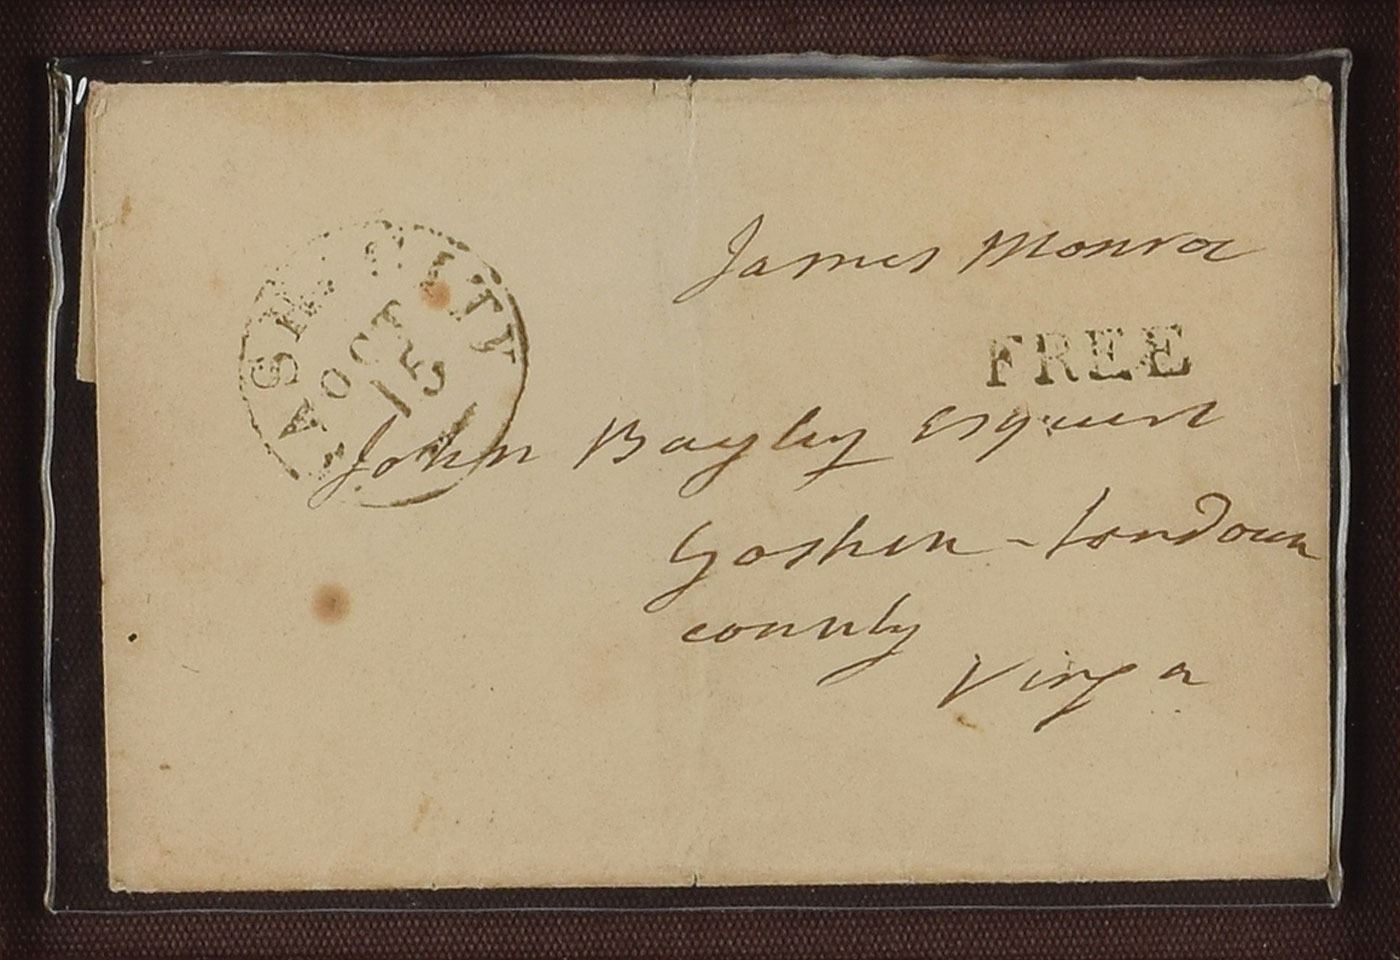 James Monroe
FREE
WASH. CITY
OCT
15
John Bayly Esquire
Goshen - Loudoun
county
Virga